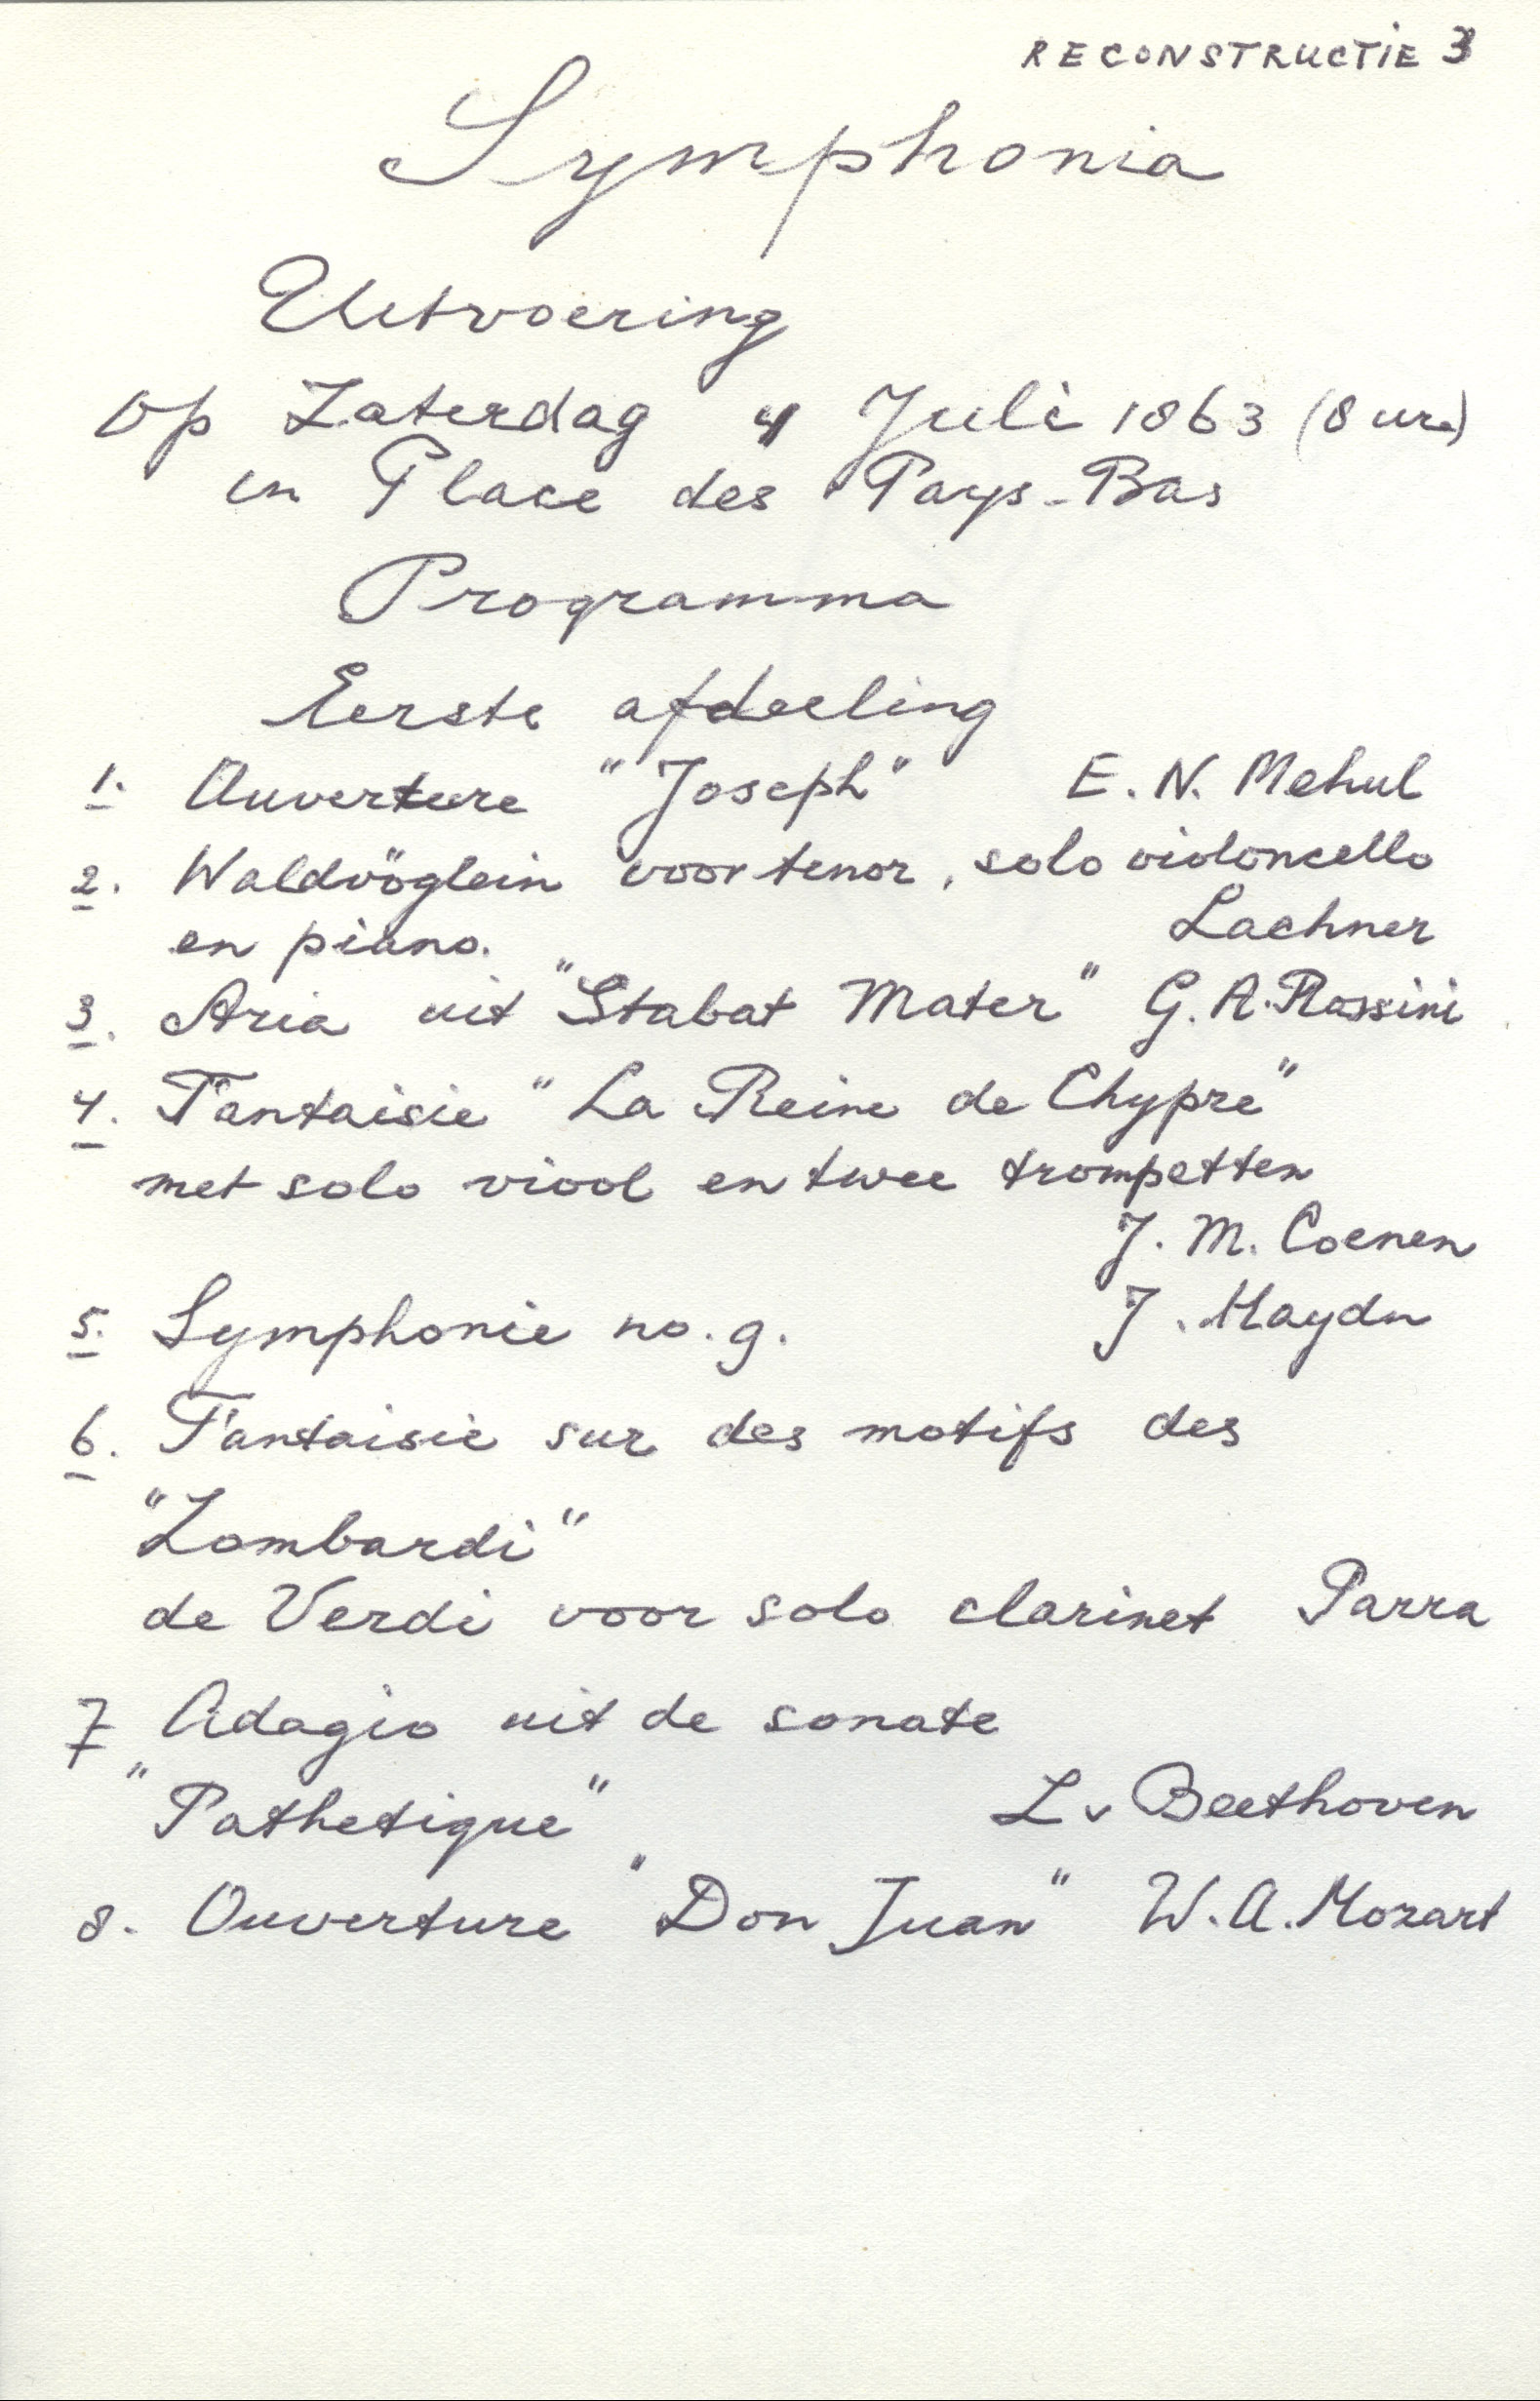 RECONSTRUCTIE 3
Symphonia
Uitvoering
op Zaterdag 4 Juli 1863 (8 ure)
in Place des Pays-Bas
Programma
Eerste afdeeling
1. Ouverture "Joseph" E. N. Mehul
2. Waldvöglein voor tenor, solo violoncello
en piano. Lachner
3. Aria uit "Stabat Mater" G. A. Rossini
4. Fantaisie "La Reine de Chypre"
met solo viool en twee trompetten
J. M. Coenen
5. Symphonie no. 9. J. Haydn
6. Fantaisie sur des motifs des
"Lombardi"
de Verdi voor solo clarinet Parra
7 Adagio uit de sonate
"Pathetique" L v Beethoven
8. Ouverture "Don Juan" W. A. Mozart